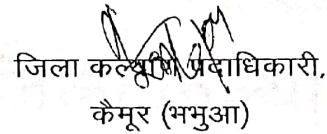 जिला कल्याण पदाधिकारी,
कैमूर (भभुआ)